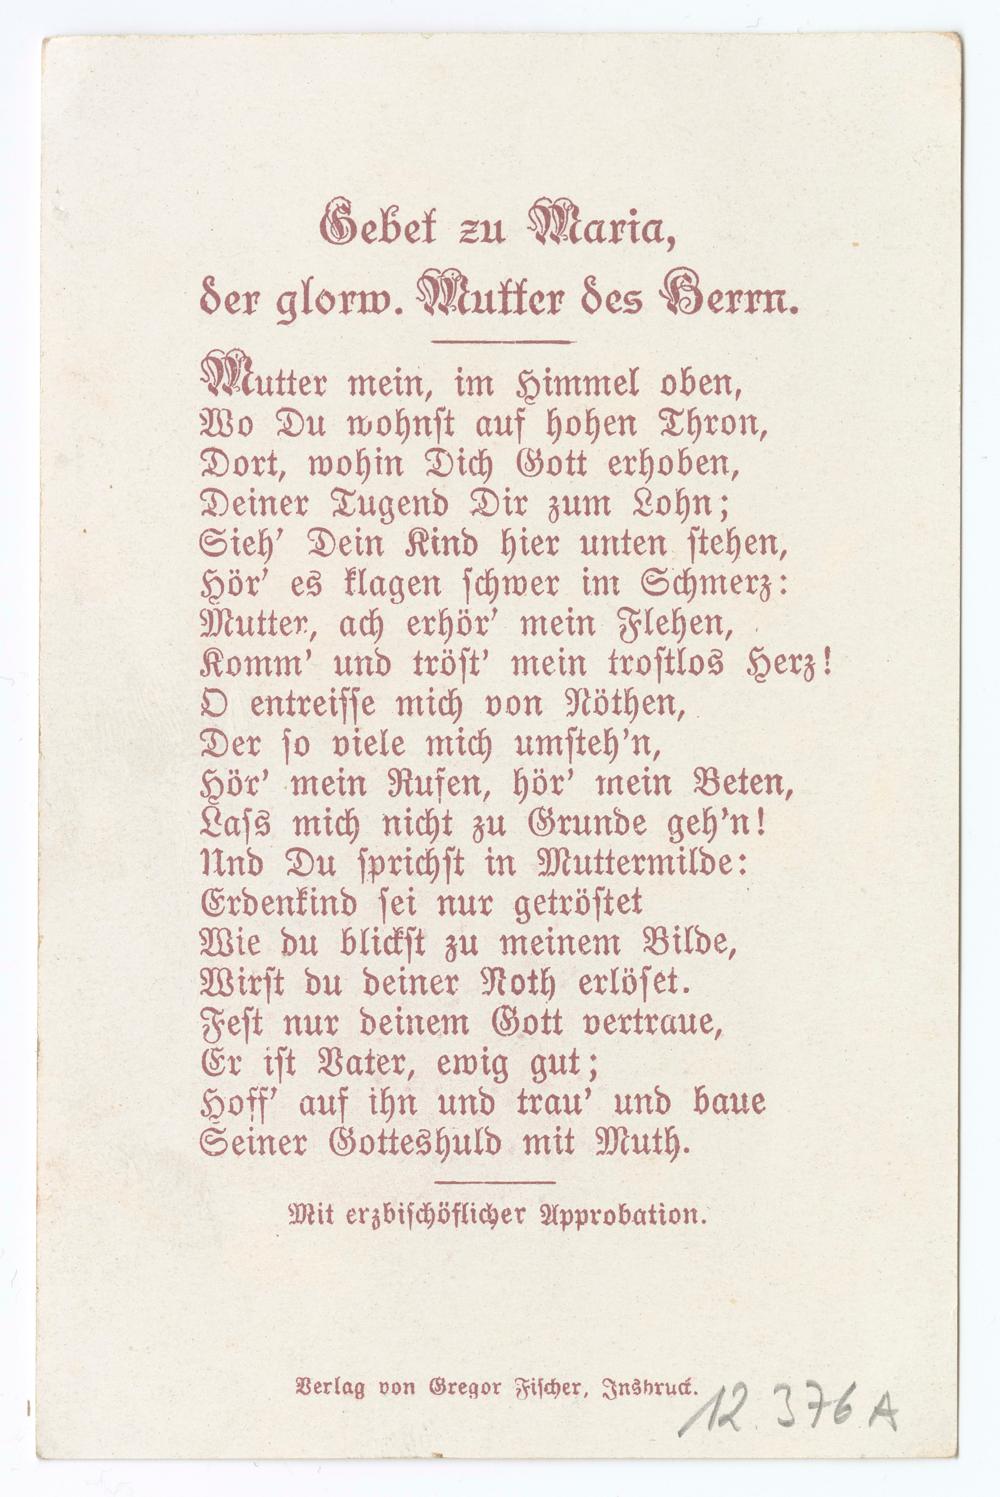 Gebet zu Maria,
der glorw. Mutter des Herrn.
Mutter mein, im Himmel oben,
Wo Du wohnst auf hohen Thron,
Dort, wohin Dich Gott erhoben,
Deiner Tugend Dir zum Lohn;
Sieh' Dein Kind hier unten stehen,
Hör' es klagen schwer im Schmerz:
Mutter, ach erhör' mein Flehen,
Komm' und tröst' mein trostlos Herz!
O entreisse mich von Nöthen,
Der so viele mich umsteh'n,
Hör' mein Rufen, hör' mein Beten,
Lass mich nicht zu Grunde geh'n!
Und Du sprichst in Muttermilde:
Erdenkind sei nur getröstet
Wie du blickst zu meinem Bilde,
Wirst du deiner Noth erlöset.
Fest nur deinem Gott vertraue,
Er ist Vater, ewig gut;
Hoff' auf ihn und trau' und baue
Seiner Gotteshuld mit Muth.
Mit erzbischöflicher Approbation.
Verlag von Gregor Fischer, Insbruck.
12.376 A